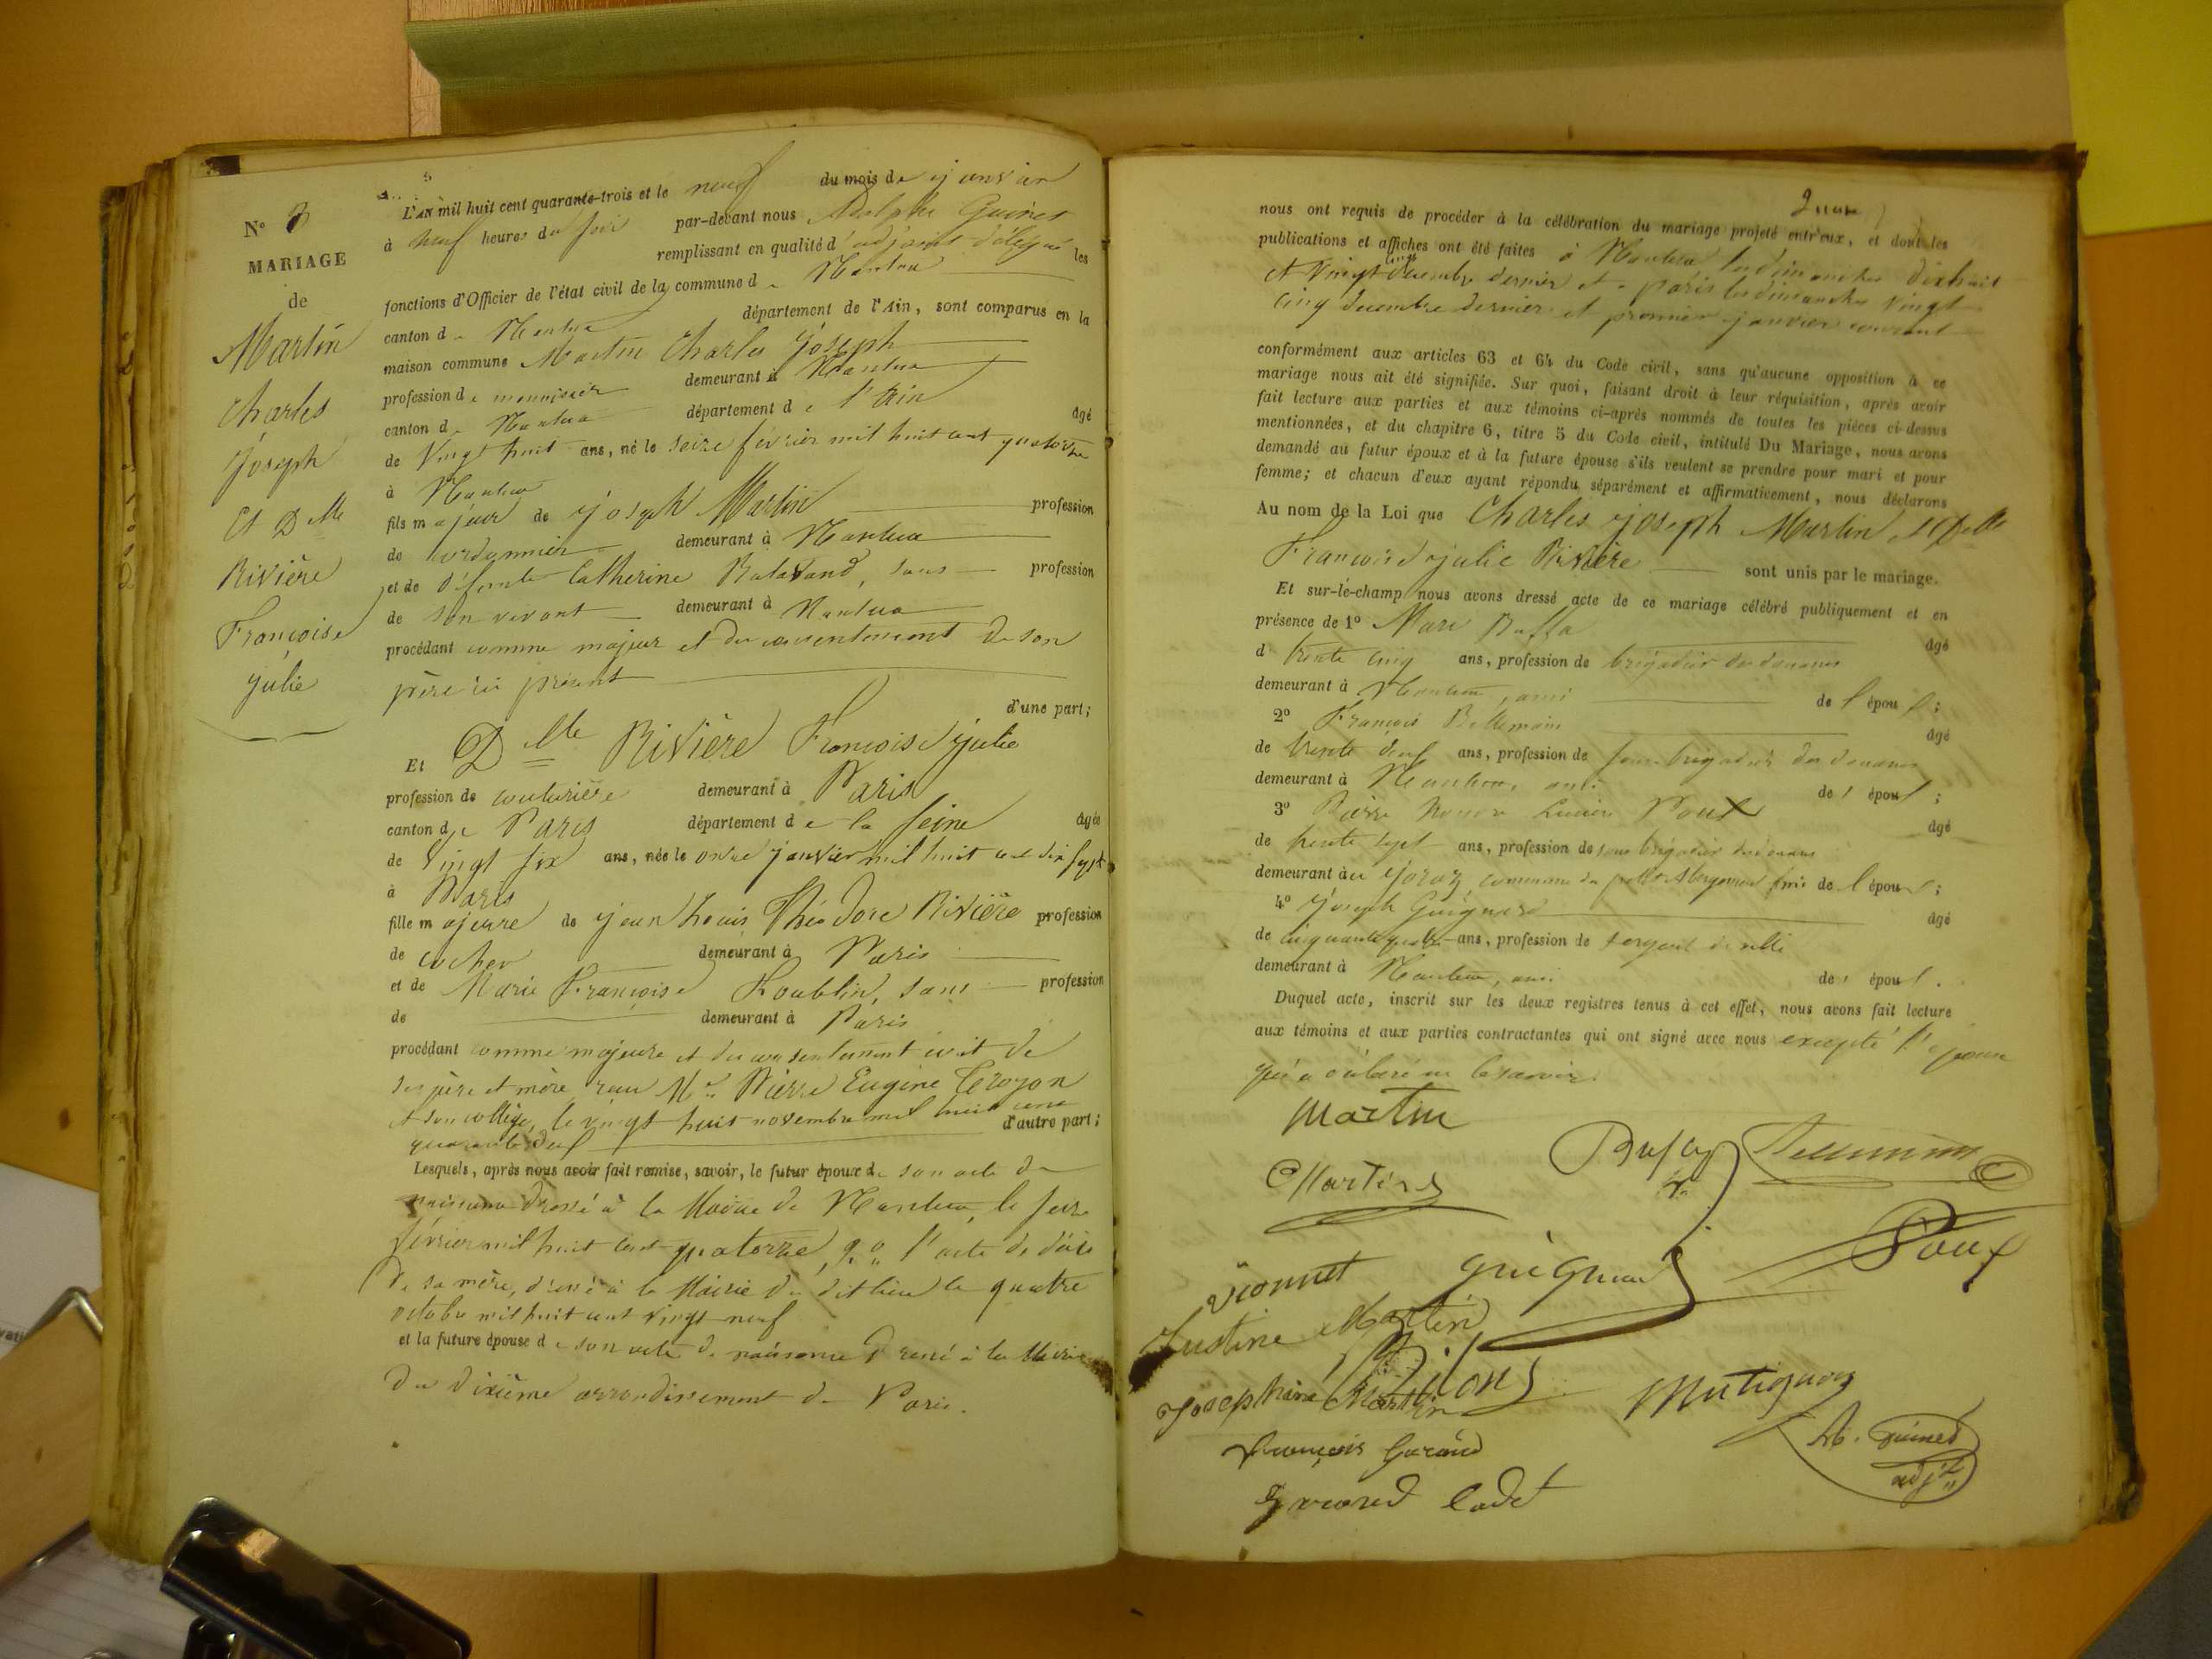 N° 3
MARIAGE
de
Martin
Charles
Joseph
Et Dlle
Rivière
Françoise
julie
L'an mil huit cent quarante-trois et le neuf du mois de janvier
à neuf heures du soir par-devant nous Adolphe Guinet
remplissant en qualité d'adjoint délégué les
fonctions d'Officier de l'état civil de la commune de Nantua
canton de Nantua département de l'Ain, sont comparus en la
maison commune Martin Charles Joseph
profession de menuisier demeurant à Nantua
canton de Nantua département de l'Ain âgé
de Vingt huit ans, né le seize février mil huit cent quatorze
à Nantua
fils majeur de joseph Martin profession
de cordonnier demeurant à Nantua
et de défunte Catherine sans profession
de son vivant demeurant à Nantua
procédant comme majeur et du consentement de son
père ici présent
d'une part;
Et Dlle Rivière Françoise julie
profession de couturière demeurant à Paris
canton de Paris département de la Seine âgée
de Vingt six ans, née le onze janvier mil huit cent dix sept
à Paris
fille majeure de jean Louis Théodore Rivière profession
de cocher demeurant à Paris
et de Marie Françoise Houblin, sans profession
de demeurant à Paris
procédant comme majeure et du consentement écrit de
ses père et mère, reçu Me Pierre Eugène
et son collègue, le vingt huit novembre mil huit cent
quarante deux d'autre part;
Lesquels, après nous avoir fait remise, savoir, le futur époux de son acte de
naissance dressé à la Mairie de Nantua, le seize
février mil huit cent quatorze, 2° l'acte de décès
de sa mère, dressé à la Mairie du dit lieu le quatre
octobre mil huit cent vingt neuf
et la future épouse de son acte de naissance dressé à la Mairie
du dixième arrondissement de Paris.
nous ont requis de procéder à la célébration du mariage projeté entr'eux, et dont les
publications et affiches ont été faites à Nantua les dimanches dixhuit
et Vingt cinq décembre dernier et à paris les dimanches vingt
cinq décembre dernier et premier janvier courant
conformément aux articles 63 et 64 du Code civil, sans qu'aucune opposition à ce
mariage nous ait été signifiée. Sur quoi, faisant droit à leur réquisition, après avoir
fait lecture aux parties et aux témoins ci-après nommés de toutes les pièces ci-dessus
mentionnées, et du chapitre 6, titre 5 du Code civil, intitulé Du Mariage, nous avons
demandé au futur époux et à la future épouse s'ils veulent se prendre pour mari et pour
femme; et chacun d'eux ayant répondu séparément et affirmativement, nous déclarons
Au nom de la Loi que Charles joseph Martin et Dlle
Françoise julie Rivière sont unis par le mariage.
Et sur-le-champ nous avons dressé acte de ce mariage célébré publiquement et en
présence de 1° Marc Buffa âgé
de trente cinq ans, profession de brigadier des douanes
demeurant à Nantua, ami de l'époux;
2° François Bellemain âgé
de trente deux ans, profession de sous brigadier des douanes
demeurant à Nantua, ami de l'époux;
3° Pierre Lucien Poux âgé
de trente sept ans, profession de sous brigadier des douanes
demeurant commune de ami de l'époux;
4° Joseph Guignard âgé
de cinquante quatre ans, profession de sergent de ville
demeurant à Nantua, ami de l'époux.
Duquel acte, inscrit sur les deux registres tenus à cet effet, nous avons fait lecture
aux témoins et aux parties contractantes qui ont signé avec nous excepté l'épouse
qui a déclaré ne le savoir.
Martin
CMartin
Buffa
Vionnet
Guignard
Poux
Justine Martin
Josephine Martin
François Gurand
Cadet
Ad. Guinet
adjt